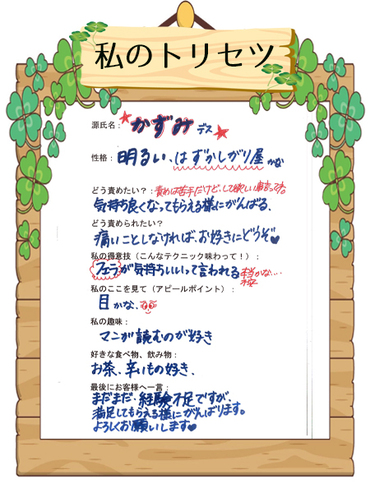 私のトリセツ
源氏名：かずみデス
性格：明るい、はずかしがり屋かな
どう責めたい？：責めは苦手だけど、して欲しい事言って下さい。
気持ち良くなってもらえる様にがんばる、
どう責められたい？
痛いことしなければ、お好きにどうぞ♥
私の得意技（こんなテクニック味わって！）：
フェラが気持ちいいって言われる本当かな…笑
私のここを見て（アピールポイント）：
目かな、
私の趣味：
マンガ読むのが好き
好きな食べ物、飲み物：
お茶、辛いもの好き、
最後にお客様へ一言：
まだまだ、経験不足ですが、
満足してもらえる様にがんばります。
よろしくお願いします♥